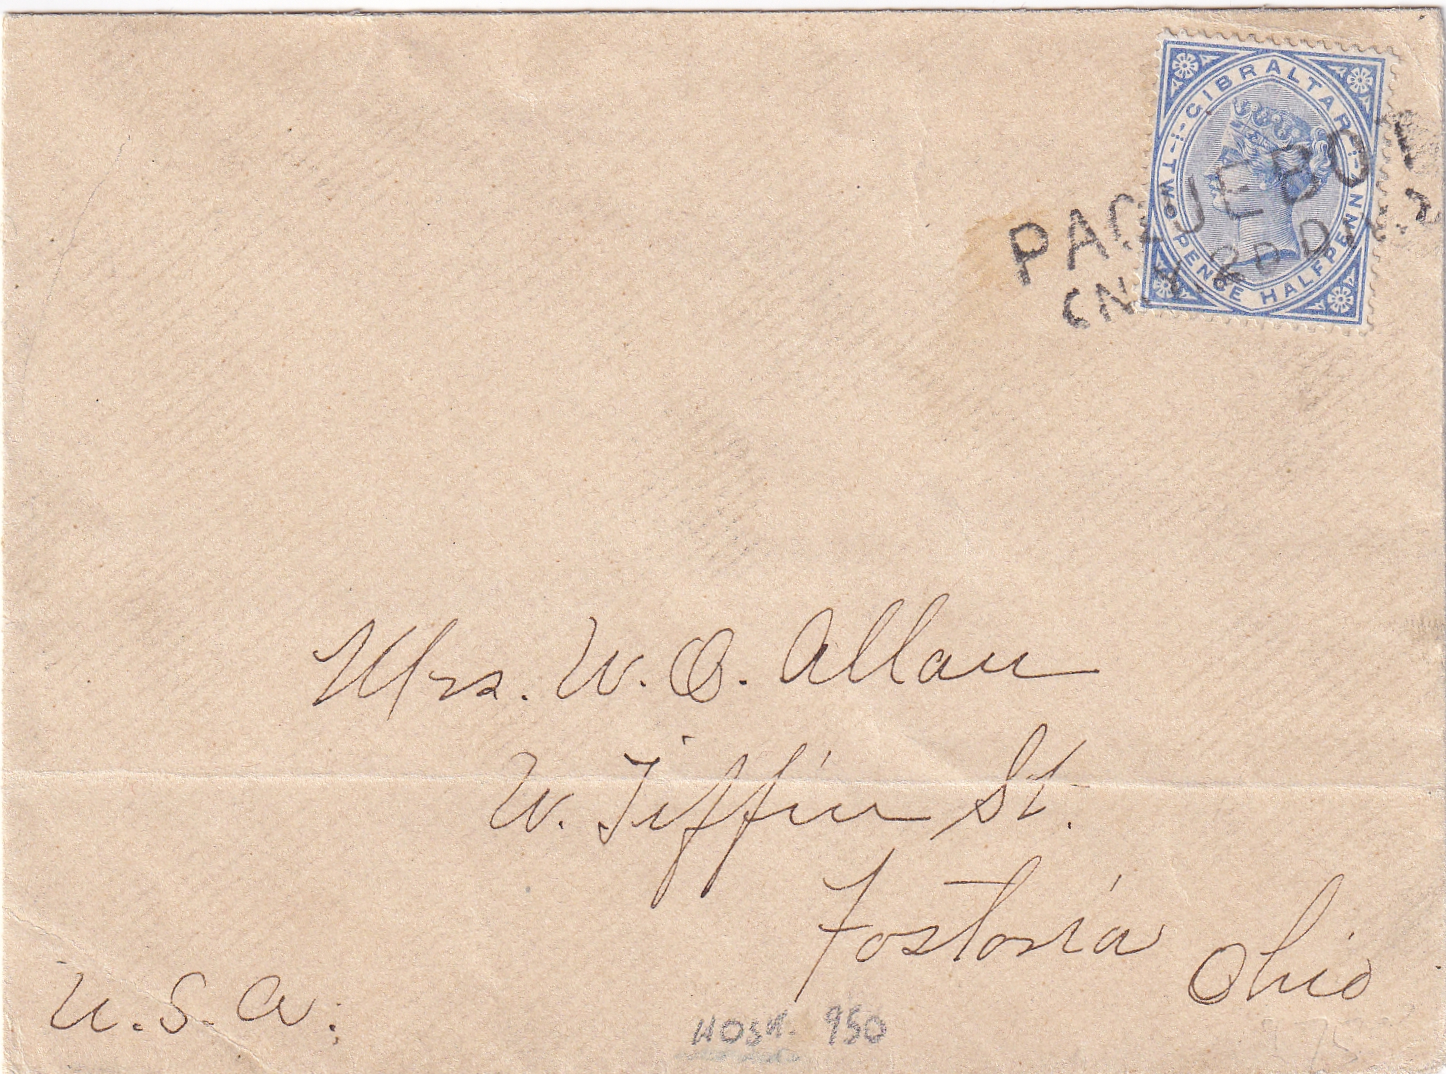 GIBRALTAR
TWO PENCE HALFPENNY
PAQUEBOT
(N.Y. 2D DIV.)
Mrs. W. O. Allan
W. Tiffin St.
Fostoria
Ohio
U. S. A.
HOSK. 950